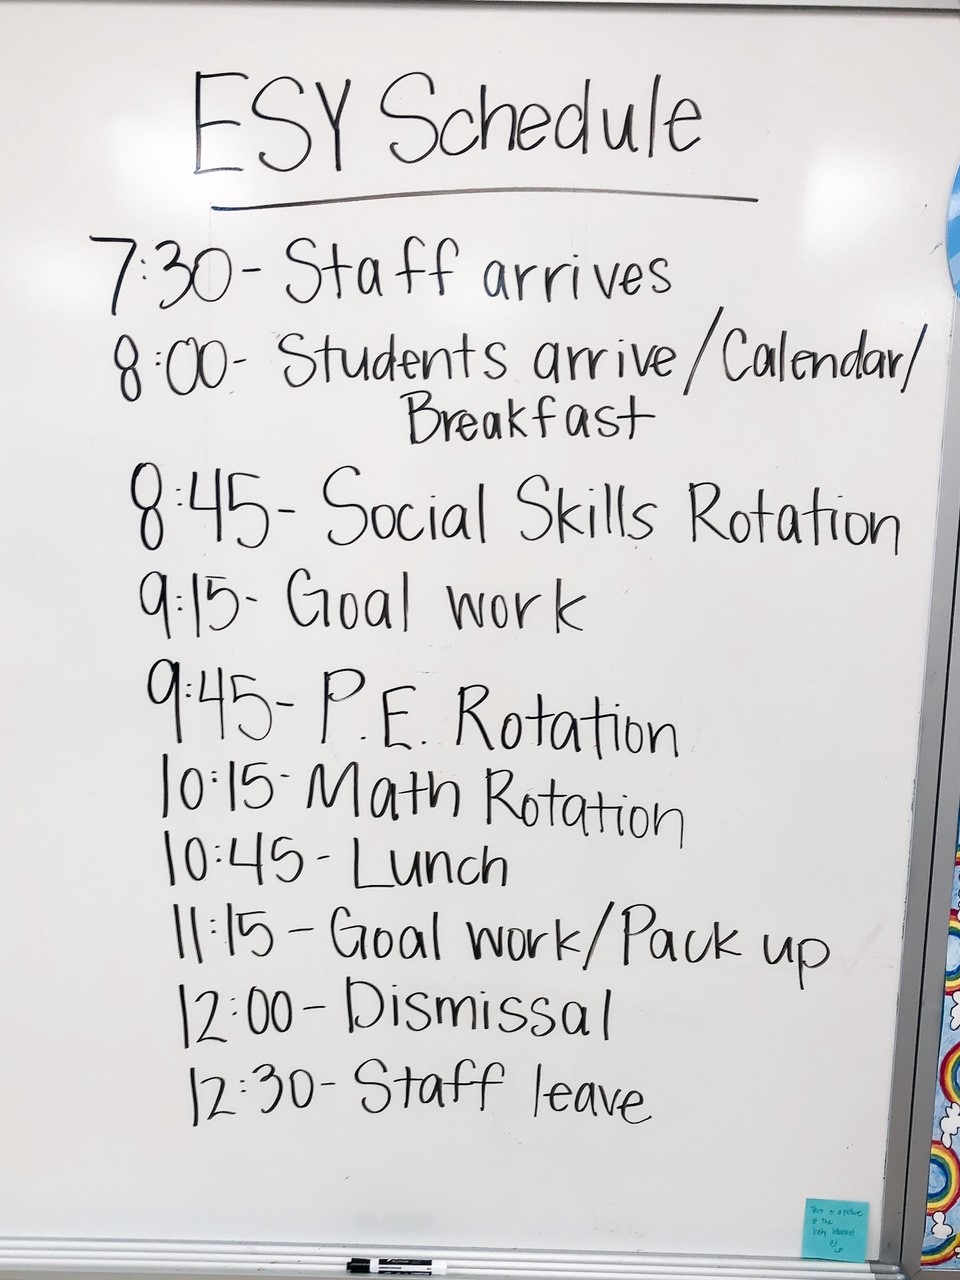 ESY Schedule
7:30- Staff arrives
8:00- Students arrive/Calendar/
Breakfast
8:45- Social Skills Rotation
9:15- Goal work
9:45- P.E. Rotation
10:15- Math Rotation
10:45- Lunch
11:15- Goal work/Pack up
12:00- Dismissal
12:30- Staff leave
of the